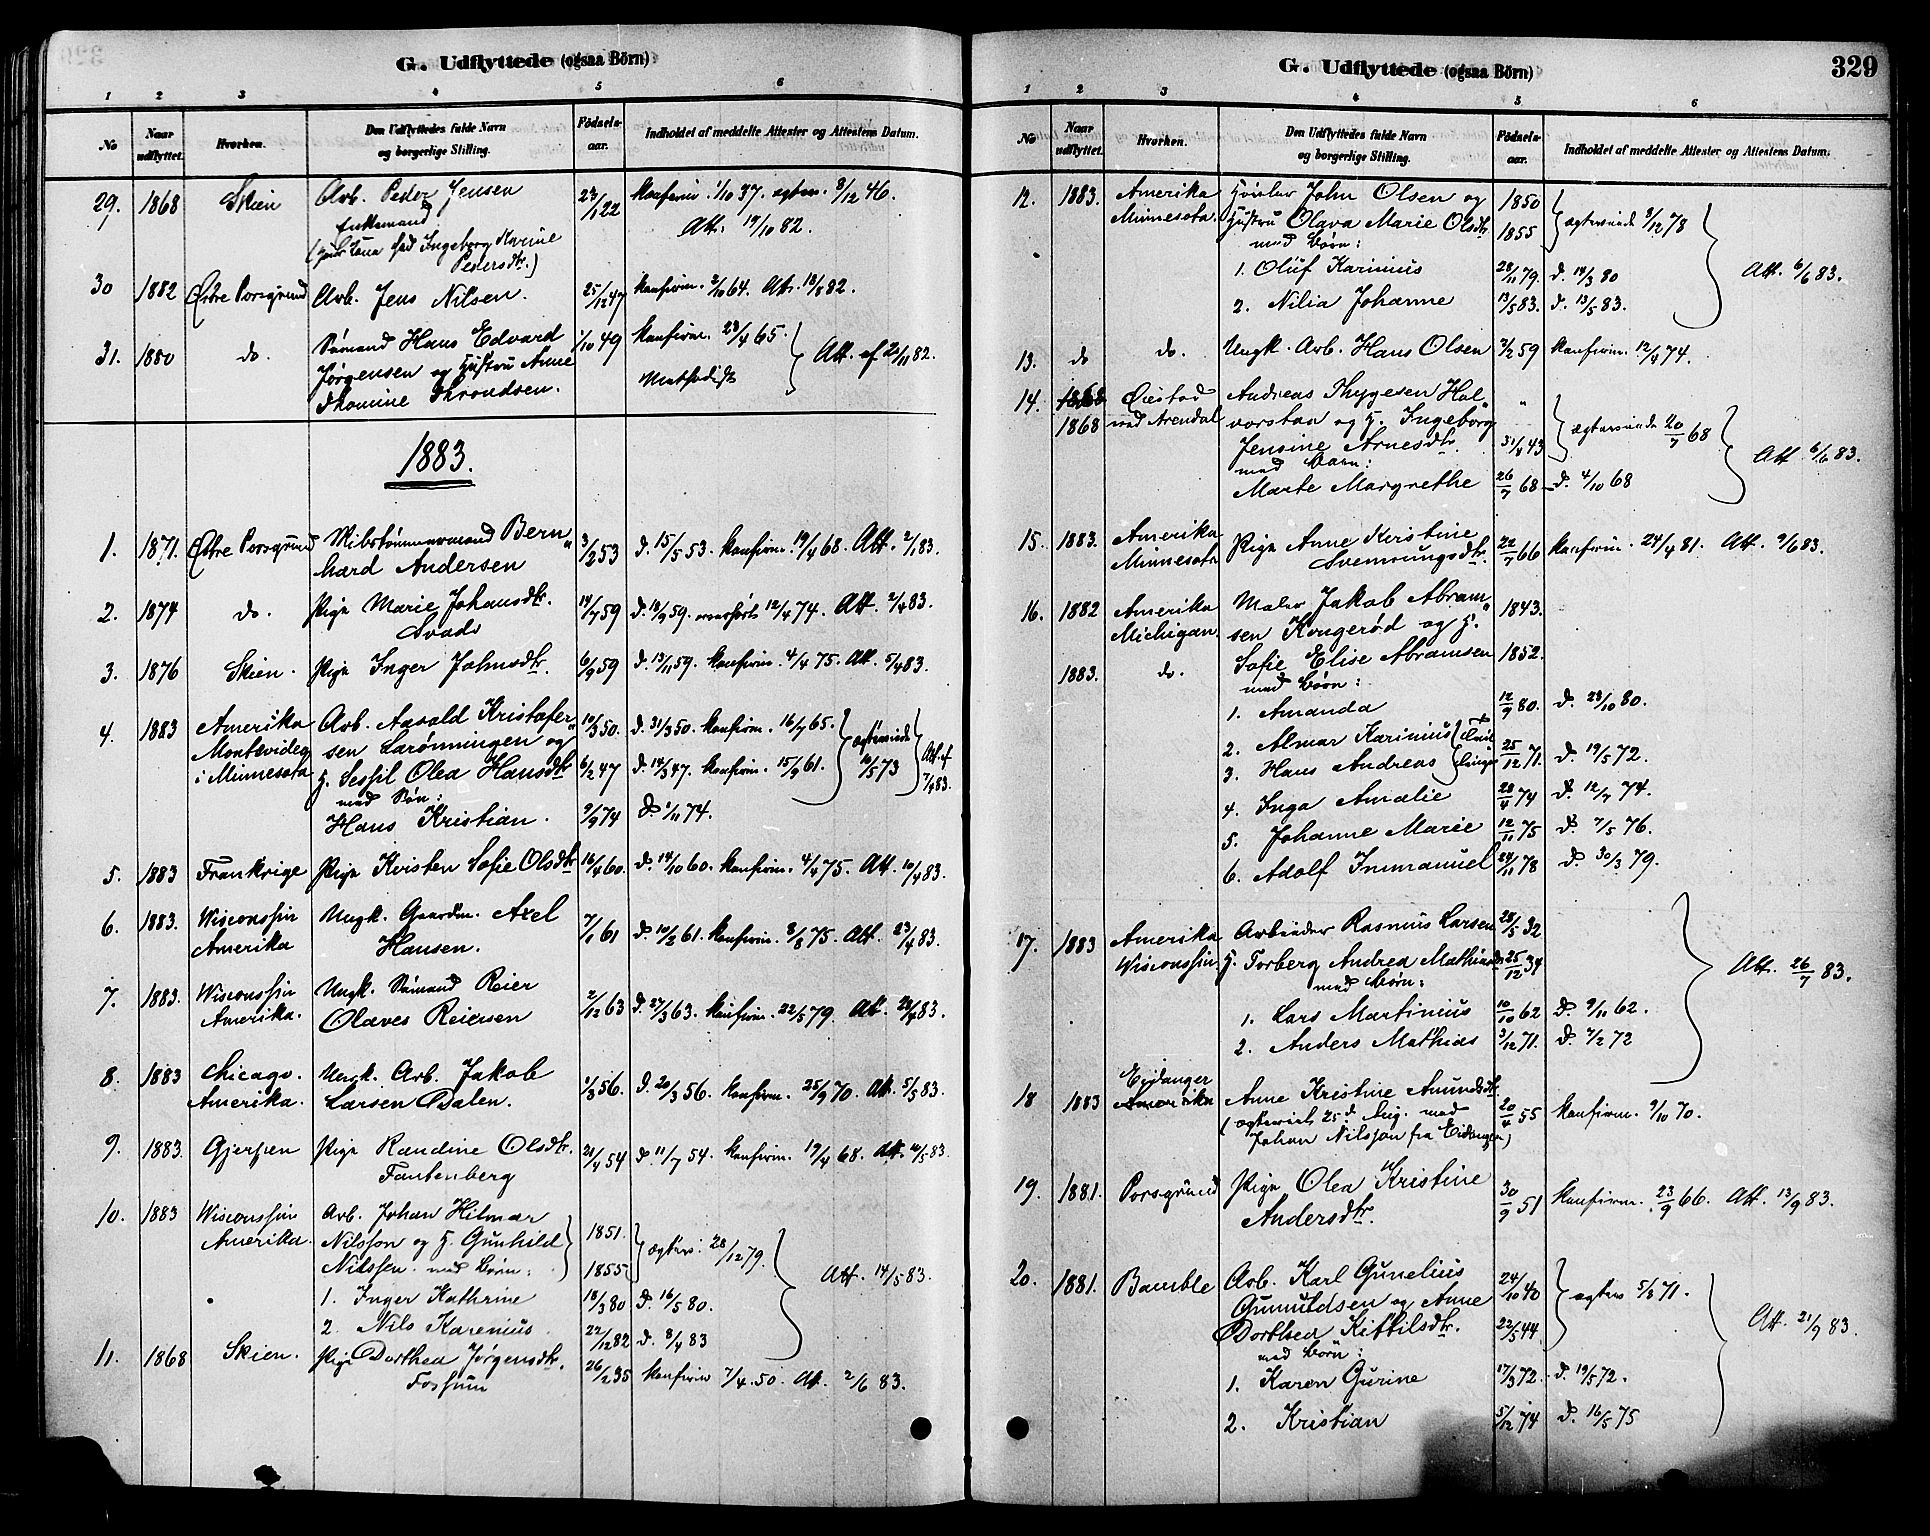 G. Udflyttede (ogsaa Börn)
1 2 3 4 5 6
No Naar udflyttet. Hvorhen. Den Udflyttedes fulde Navn og borgerlige Stilling. Födsels-aar. Indholdet af meddelte Attester og Attestens Datum.
29. 1868 Skien Arb. Peder Jensen 23/1 22 konfirm. 1/10 37. egtev. 3/12 46.
Enkemand Att. 19/10 82.
Ingeborg Karine
Pedersdtr.)
30 1882 Östre Porsgrund Arb. Jens Nilsen. 25/12 47 konfirm. 2/10 64. Att. 18/8 82.
31. 1880 do. Sömand Hans Edvard 1/10 49 konfirm. 23/4 65. Att. af 20/11 82.
Jörgensen og Hustru Anne Methodist
Thomine Throndsen.
1883.
1. 1871. Östre Porsgrund Bern„ 3/2 53 d. 15/5 53. konfirm. 19/4 68. Att. 2/1 83.
hard Andersen
2. 1874 do. Pige Marie Johansdtr. 14/7 59 d. 18/9 59. 12/4 74. Att. 2/4 83.
3. 1876 Skien. Pige Inger Johnsdtr. 6/9 59 d. 13/11 59. konfirm. 4/4 75. Att. 5/4 83.
4. 1883 Amerika Arb. Aasold Kristofer„ 10/3 50. d. 31/3 50. konfirm. 16/7 65. egteviede Att. af
Montevideo sen Larönningen og 10/5 73 7/4 83.
i Minnesota H. Sessil Olea Hansdtr 6/2 47 d. 14/3 47. konfirm. 15/9 61.
med Sön:
Hans Kristian. 9/9 74 d. 1/11 74.
5. 1883 Frankrige Pige Kirsten Sofie Olsdtr 16/4 60. d. 14/10 60. konfirm. 4/4 75. Att. 10/4 83.
6. 1883. Wisconssin Ungk. Gaardm. Axel 7/1 61 d. 10/2 61. konfirm. 8/8 75. Att. 23/4 83.
Amerika Hansen.
7. 1883. Wisconssin Ungk. Sömand Reier 2/12 63 d. 27/3 63. konfirm. 22/5 79. Att. 28/4 83.
Amerika. Olaves Reiersen
8. 1883 Chicago. Ungk. Arb. Jakob 1/3 56. d. 20/3 56. konfirm. 25/9 70. Att. 5/5 83.
Amerika. Larsen Dalen.
9. 1883. Gjerpen Pige Randine Olsdtr. 21/4 54 d. 11/7 54. konfirm. 19/4 68. Att. 10/5 83.
Fantenberg
10. 1883 Wisconssin Arb. Johan Hilmar 1851.
Amerika. Nilsson og H. Gunhild egtev. 28/12 79. Att. 14/5 83.
Nilssen. med Börn: 1855
1. Inger Kathrine 18/3 80 d. 16/5 80.
2. Nils Karenius. 22/12 82 d. 8/4 83
11. 1868 Skien. Pige Dorthea Jörgensdtr. 26/2 35 konfirm 7/4. 50. Att. 2/6 83.
Fossum
G. Udflyttede (ogsaa Börn) 329
1 2 3 4 5 6
No Naar udflyttet. Hvorhen. Den Udflyttedes fulde Navn og borgerlige Stilling. Födsels-aar. Indholdet af meddelte Attester og Attestens Datum.
12. 1883. Amerika John Olsen og 1850
Minnesota. Hustru Olava Marie Olsdtr 1855 egteviede 8/12 78
med Börn:
1. Oluf Karinius 28/11 79. d. 14/3 80 Att. 6/6 83.
2. Nilia Johanne 13/5 83. d. 13/5 83.
13. do do. Ungk. Arb. Hans Olsen 2/2 59 konfirm. 12/4 74.
14. 1868 Öiestad Andreas Thygesen Hal„ „
1868 ved Arendal vorstad og H. Ingeborg egteviede 20/7 68
Jensine Arnesdtr. 31/8 43 Att 6/6 83.
med Barn:
Marte Margrethe 26/7 68 d. 4/10 68
15. 1883. Amerika Pige Anne Kirstine 22/7 66 konfirm. 24/4 81. Att. 9/6 83.
Minnesota Svennungsdtr.
16. 1882 Amerika Maler Jakob Abram„ 1843.
Michigan. sen Kongeröd og H.
1883. do. Sofie Elise Abramsen 1852.
med Börn:
1. Amanda 12/9 80. d. 23/10 80.
2. Almar Karinius Tvil
3. Hans Andreas linger 25/12 71. d. 19/5 72.
4. Inga Amalie 28/4 74 d. 12/7 74.
5. Johanne Marie 12/11 75 d. 7/5 76.
6. Adolf Immanuel 24/11 78 d. 30/3 79.
17. 1883 Amerika Arbeider Rasmus Larsen 28/5 32
Wisconssin. H. Torberg Andrea Mathiasdtr 25/12 34 Att. 26/7 83.
med Börn:
1. Lars Martinius 10/10 62 d. 9/11 62.
2. Anders Mathias 3/12 71. d. 2/2 72
18 1883 Eidanger Anne Kristine Amundsdtr. 20/4 55 konfirm. 9/10 70.
Amerika (egteviet 25 d. Aug. med
Johan Nilsson fra Eidanger)
19. 1881. Porsgrund Pige Olea Kristine 30/9 51 konfirm. 23/9 66. Att. 13/9 83.
Andersdtr.
20. 1881. Bamble Arb. Karl Gunelius 24/10 40 egtev 5/3 71.
Gunnuldsen og Anne
Dorthea Kittilsdtr. 22/5 44. Att. 21/9 83.
med Börn:
1. Karen Gurine 17/3 72. d. 19/5 72.
2. Kristian 5/12 74 d. 16/5 75